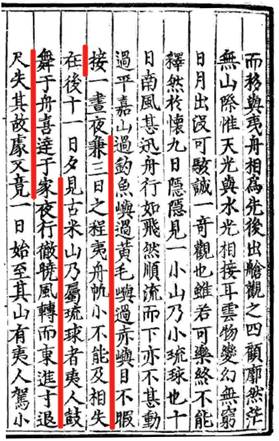 而移與夷舟相為先後出艙觀之四顧廓然茫
無山際惟天光與水光相接耳雲物變幻無窮
日月出沒可駭誠一奇觀也雖若可樂終不能
釋然於懷九日隱隱見一小山乃小琉球也十
日南風甚迅舟行如飛然順流而下亦不甚動
過平嘉山過釣魚嶼過黃毛嶼過赤嶼目不暇
接一晝夜兼三日之程夷舟帆小不能及相失
在後十一日夕見古米山乃屬琉球者夷人鼓
舞于舟喜達于家夜行徹曉風轉而東進寸退
尺失其故處又竟一日始至其山有夷人駕小